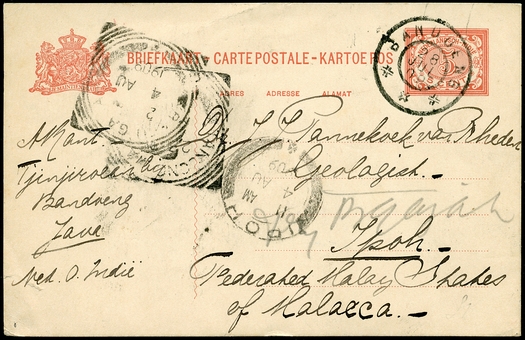 BRIEFKAART-CARTE POSTALE-KARTOEPOS
ADRES ADRESSE ALAMAT
BANDOENG
IPOH
AM
11
4
AU
09
A Kant.
Tjinjiroean
Bandoeng
Java
Ned. O. Indië
J. J. Pannekoek van Rheden
Geologist.
Ipoh.
Federated Malay States
of Malacca.